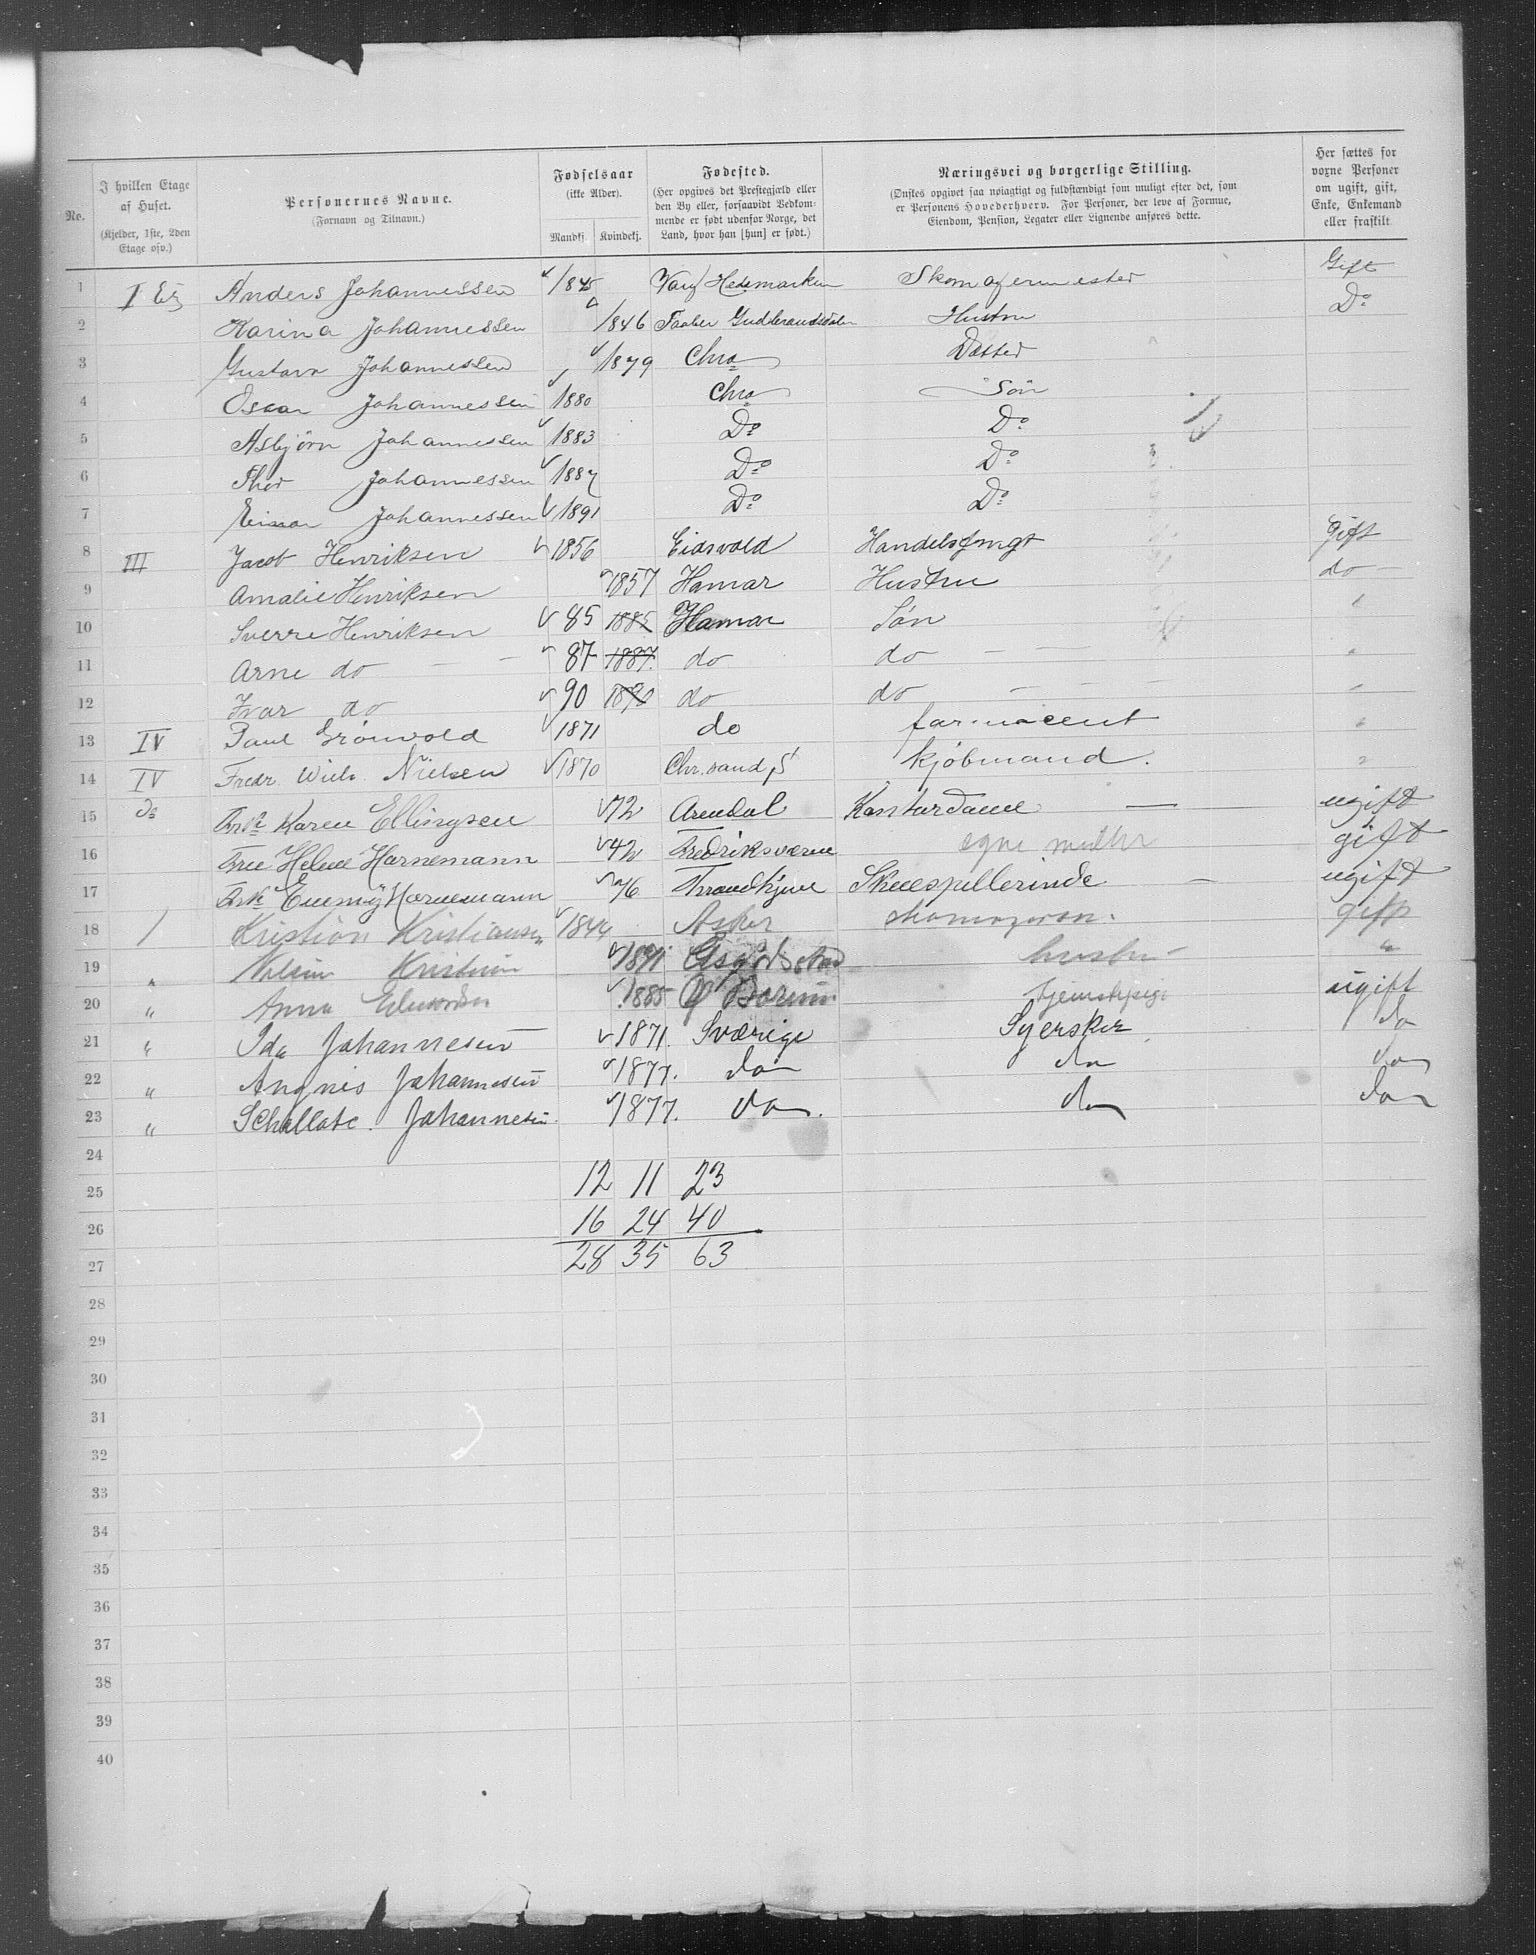 No. | I hvilken Etage af Huset. (Kjelder, 1ste, 2den Etage osv.) | Personernes Navne. (Fornavn og Tilnavn.) | Fødselsaar (ikke Alder). Mandkj. Kvindekj. | Fødested. (Her opgives det Prestegjæld eller den By eller, forsaavidt Vedkommende er født udenfor Norge, det Land, hvor han [hun] er født.) | Næringsvei og borgerlige Stilling. (Ønskes opgivet saa nøiagtigt og fuldstændigt som muligt efter det, som er Personens Hovederhverv. For Personer, der leve af Formue, Eiendom, Pension, Legater eller Lignende anføres dette.) | Her sættes for voxne Personer om ugift, gift, Enke, Enkemand eller fraskilt
1 I Etg Anders Johannessen 1845 Hedemarken Skomagermester Gift
2 Karina Johannessen 1846 Faaber Gudbrandsdalen Hustru Do
3 Gustava Johannessen 1879 Chra Datter
4 Oscar Johannessen 1880 Chra Søn
5 Asbjørn Johannessen 1883 Do Do
6 Thor Johannessen 1887 Do Do
7 Einar Johannessen 1891 Do Do
8 III Jacob Henriksen 1856 Eidsvold Handelsfmgt Gift
9 Amalie Henriksen 1857 Hamar Hustru do
10 Sverre Henriksen 85 1885 Hamar Søn "
11 Arne do 87 1887. do do "
12 Ivar do 90 1890 do do "
13 IV Paul Grønvold 1871 do farmaceut "
14 IV Fredr. Wilh. Nielsen 1870 Chr.sand S kjøbmand. "
15 do Frk. Karen Ellingsen 72 Arendal Kontordame ugift
16 Fru Helene Hornemann 42 Fredriksværn egne midler gift
17 Frk. Emmy Hornemann 76 Throndhjem Skuespillerinde ugift
18 1 Kristian Kristiansen 1844 Asker gift
19 " Kristian 1841 hustru "
20 " Anna 1885 Ø Bærum tjenestepige ugift
21 " Ida Johannesen 1871. Sværige Syerske do
22 " Angnis Johannesen 1877. do do do
23 " Schallote. Johannesen 1877. do. do do
24
25 12 11 23
26 16 24 40
27 28 35 63
28
29
30
31
32
33
34
35
36
37
38
39
40